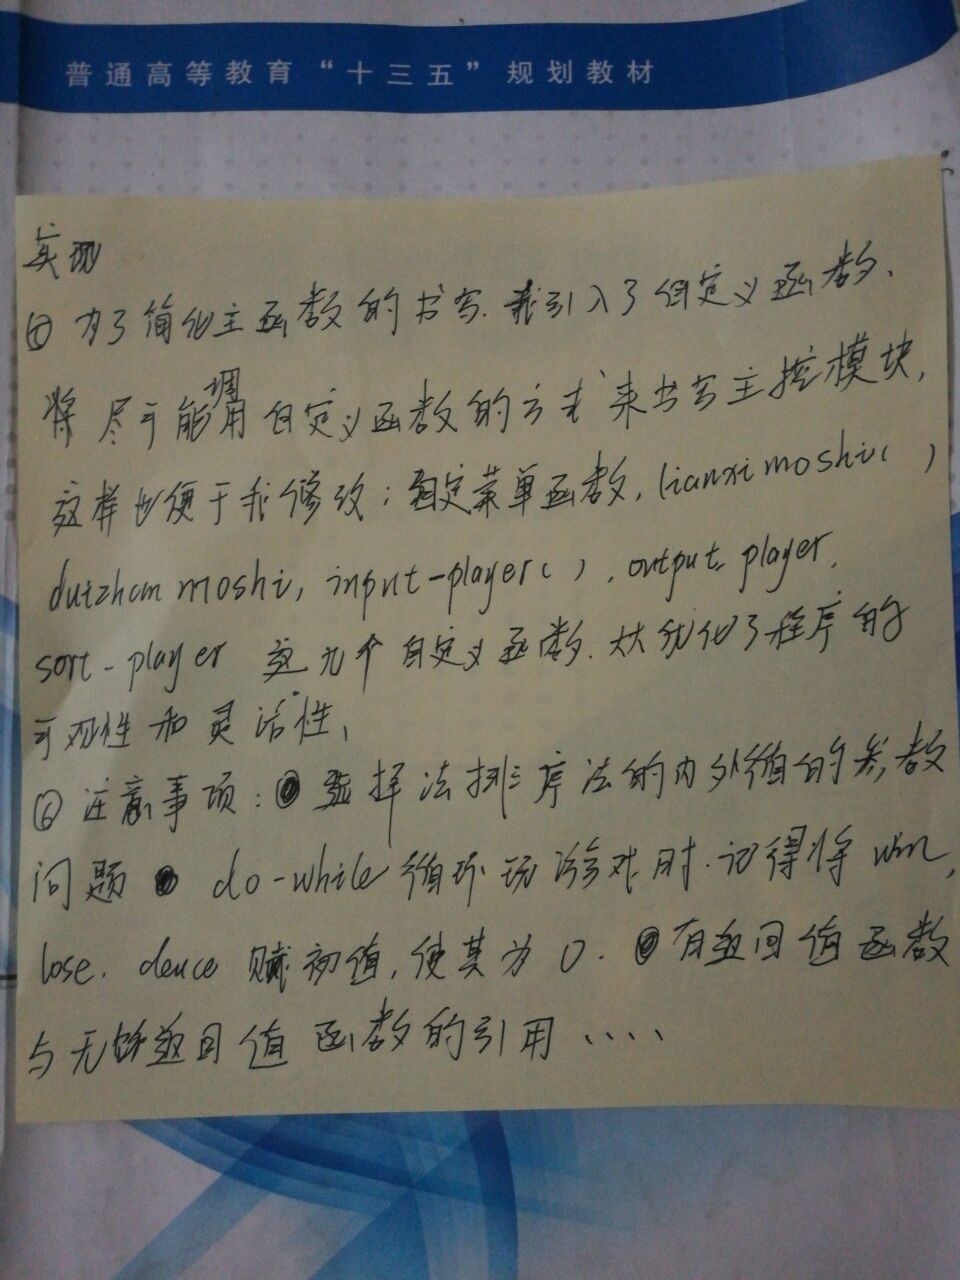 普通高等教育“十三五”规划教材
实现
① 为了简化主函数的书写.我引入了自定义函数、
将尽可能调用自定义函数的方式来书写主控模块,
这样也便于我修改;自定菜单函数,lianximoshi( )
duizhanmoshi, input-player( ), output player,
sort-player 这九个自定义函数.大大优化了程序的
可观性和灵活性,
② 注意事项: 选择法排序法的内外循的参数
问题 do-while 循环玩游戏时.记得将 win,
lose. deuce 赋初值,使其为 0. 有返回值函数
与无返回值函数的引用 ....